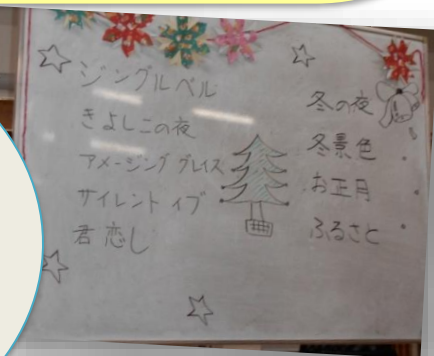 ジングルベル
きよしこの夜
アメージング グレイス
サイレント イブ
君恋し
冬の夜
冬景色
お正月
ふるさと